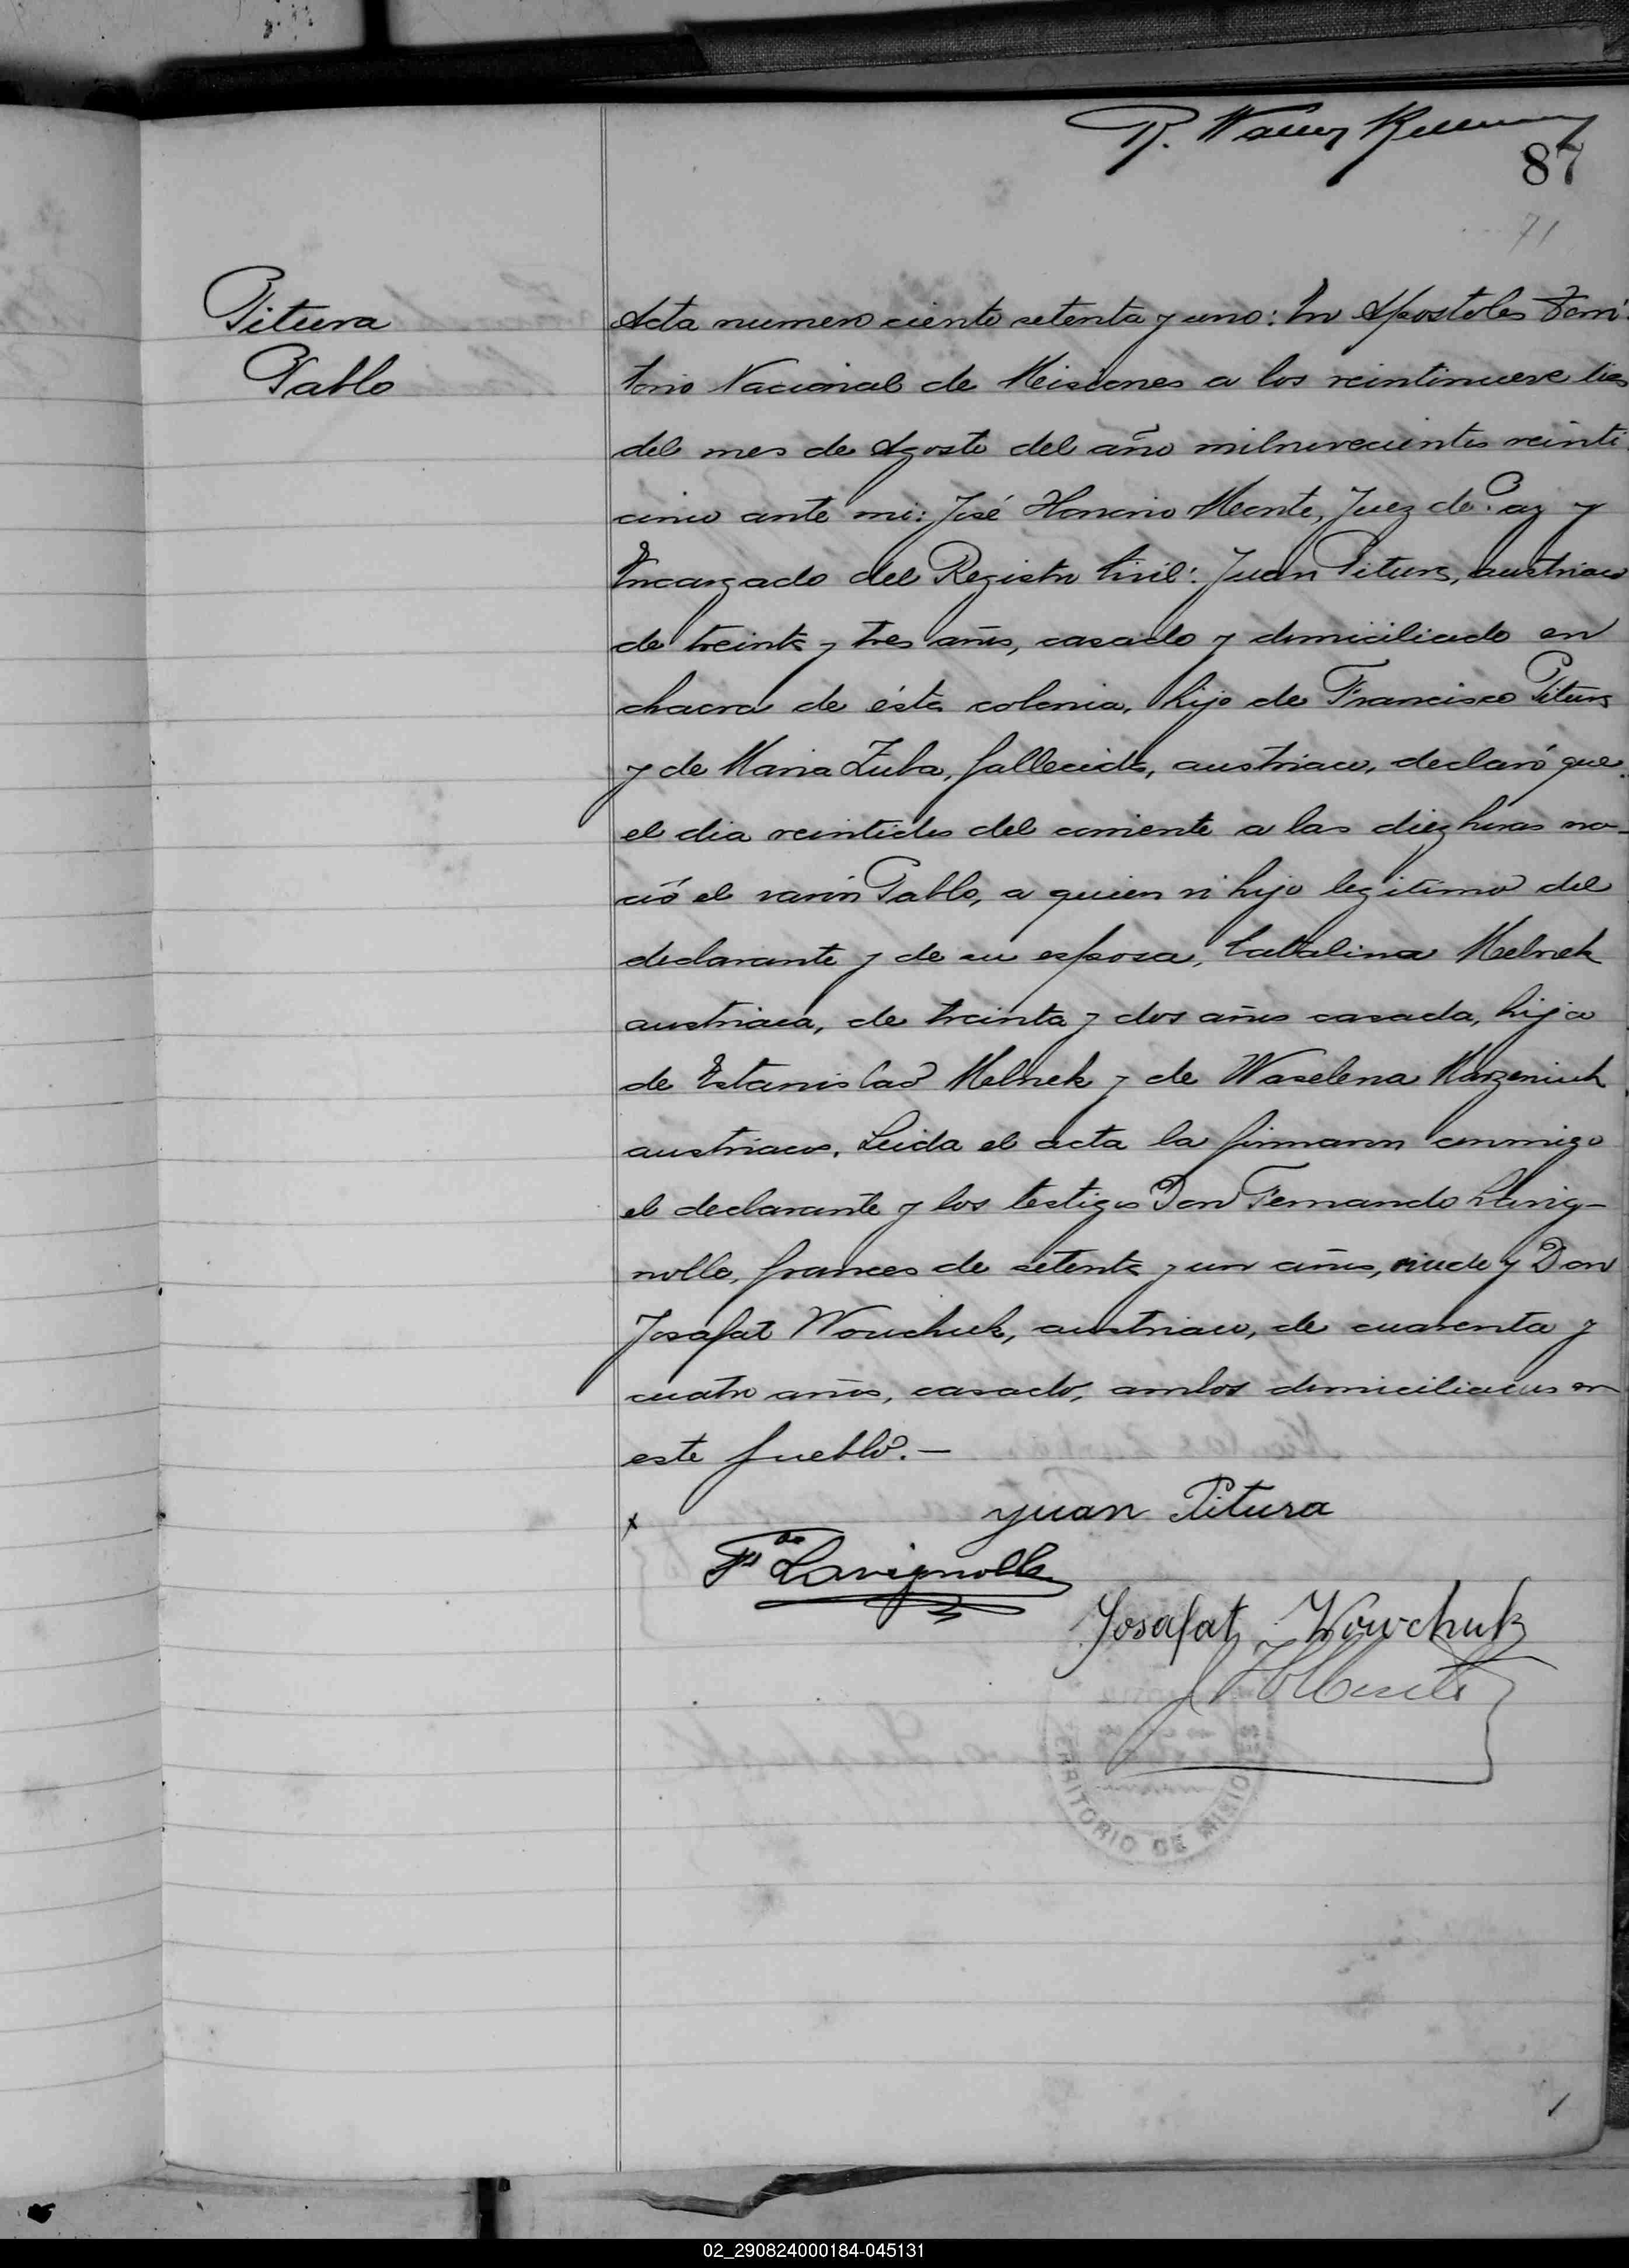 87
71
Pitura
Pablo
Acta numero ciento setenta y uno: En Apostoles Terri-
torio Nacional de Misiones a los veintinueve dias
del mes de Agosto del año milnovecientos veinti
cinco ante mi: José Honorio Monte, Juez de Paz y
Encargado del Registro Civil: Juan Pitura, austriaco
de treinta y tres años, casado y domiciliado en
chacra de ésta colonia, hijo de Francisco Pitura
y de Maria Zuba, fallecida, austriaco, declaró que
el dia veintidos del corriente a las diez horas na-
ció el varón Pablo, a quien vi hijo legitimo del
declarante y de su esposa, Catalina Melnek
austriaca, de treinta y dos años casada, hija
de Estanislao Melnek y de Waselena Marzeniuk
austriacos. Leida el acta la firmaron conmigo
el declarante y los testigos Don Fernando Lavig-
nolle, frances de setenta y un años, viudo y Don
Josafat Wowchuk, austriaco, de cuarenta y
cuatro años, casado, ambos domiciliados en
este pueblo.-
x
Juan Pitura
Fdo Lavignolle
Josafat Wowchuk
TERRITORIO DE MISIONES
02_290824000184-045131